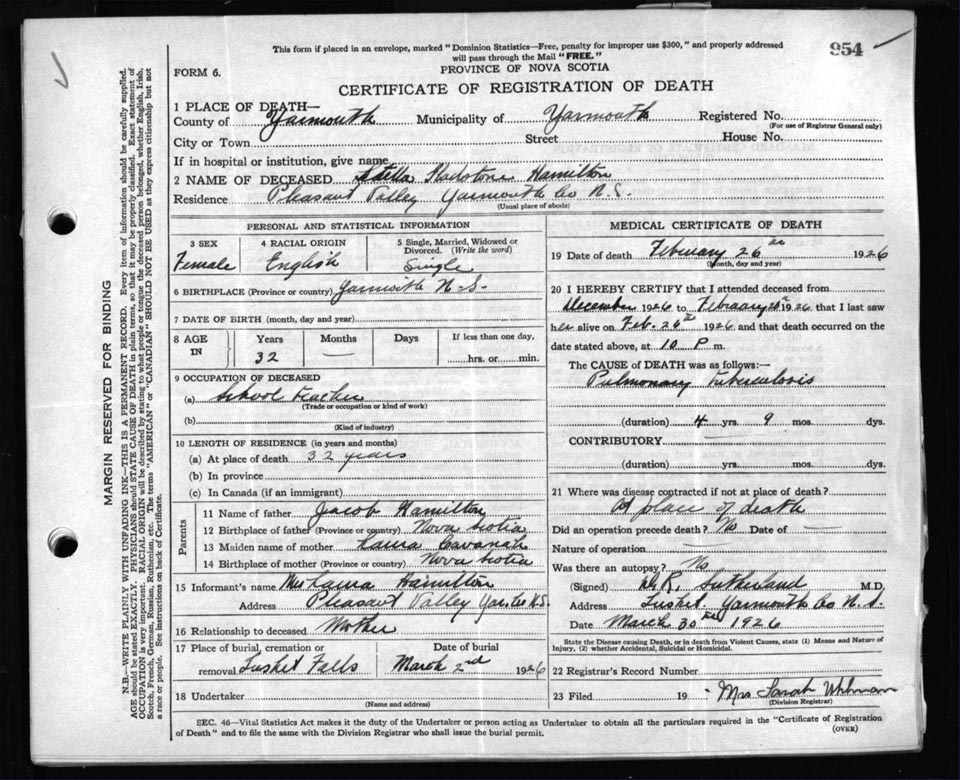 This form if placed in an envelope, marked "Dominion Statistics—Free, penalty for improper use $300," and properly addressed
will pass through the Mail "FREE."
954
FORM 6.
PROVINCE OF NOVA SCOTIA
CERTIFICATE OF REGISTRATION OF DEATH
MARGIN RESERVED FOR BINDING
N.B.—WRITE PLAINLY WITH UNFADING INK—THIS IS A PERMANENT RECORD. Every item of information should be carefully supplied.
AGE should be stated EXACTLY. PHYSICIANS should STATE CAUSE OF DEATH in plain terms, so that it may be properly classified. Exact statement of
OCCUPATION is very important. RACIAL ORIGIN will be described by stating to what people or tongue the deceased person belonged, whether English, Irish,
Scotch, French, German, Russian, Ruthenian, etc. The terms "AMERICAN" or "CANADIAN" SHOULD NOT BE USED as they express citizenship but not
a race or people. See instructions on back of Certificate.
1 PLACE OF DEATH—
County of Yarmouth Municipality of Yarmouth Registered No.
(For use of Registrar General only)
City or Town Street House No.
If in hospital or institution, give name
2 NAME OF DECEASED Gladstone Hamilton
Residence Pleasant Valley Yarmouth Co N.S.
(Usual place of abode)
PERSONAL AND STATISTICAL INFORMATION
3 SEX 4 RACIAL ORIGIN 5 Single, Married, Widowed or
Divorced. (Write the word)
Female English Single
6 BIRTHPLACE (Province or country) Yarmouth N.S.
7 DATE OF BIRTH (month, day and year)
8 AGE IN Years Months Days If less than one day,
32 — hrs. or min.
9 OCCUPATION OF DECEASED
(a) School Teacher
(Trade or occupation or kind of work)
(b)
(Kind of industry)
10 LENGTH OF RESIDENCE (in years and months)
(a) At place of death 32 years
(b) In province
(c) In Canada (if an immigrant)
Parents
11 Name of father Jacob Hamilton
12 Birthplace of father (Province or country) Nova Scotia
13 Maiden name of mother Laura Cavanah
14 Birthplace of mother (Province or country) Nova Scotia
15 Informant's name Mrs Laura Hamilton
Address Pleasant Valley Yar. Co N.S.
16 Relationship to deceased Mother
17 Place of burial, cremation or Date of burial
removal Tusket Falls March 2nd 1926
18 Undertaker
(Name and address)
MEDICAL CERTIFICATE OF DEATH
19 Date of death February 26th 1926
(Month, day and year)
20 I HEREBY CERTIFY that I attended deceased from
December 1926 to February 26th 1926 that I last saw
her alive on Feb. 26th 1926 and that death occurred on the
date stated above, at 10 P m.
The CAUSE of DEATH was as follows:—
Pulmonary Tuberculosis
(duration) 4 9 mos. dys.
CONTRIBUTORY
(duration) yrs. mos. dys.
21 Where was disease contracted if not at place of death?
At place of death
Did an operation precede death? No Date of —
Nature of operation —
Was there an autopsy? No
(Signed) Sutherland M.D.
Address Tusket Yarmouth Co N.S.
Date March 30th 1926
State the Disease causing Death, or in death from Violent Causes, state (1) Means and Nature of
Injury, (2) whether Accidental, Suicidal or Homicidal.
22 Registrar's Record Number
23 Filed 19 Mrs Sarah
(Division Registrar)
SEC. 46—Vital Statistics Act makes it the duty of the Undertaker or person acting as Undertaker to obtain all the particulars required in the "Certificate of Registration
of Death" and to file the same with the Division Registrar who shall issue the burial permit.
(OVER)